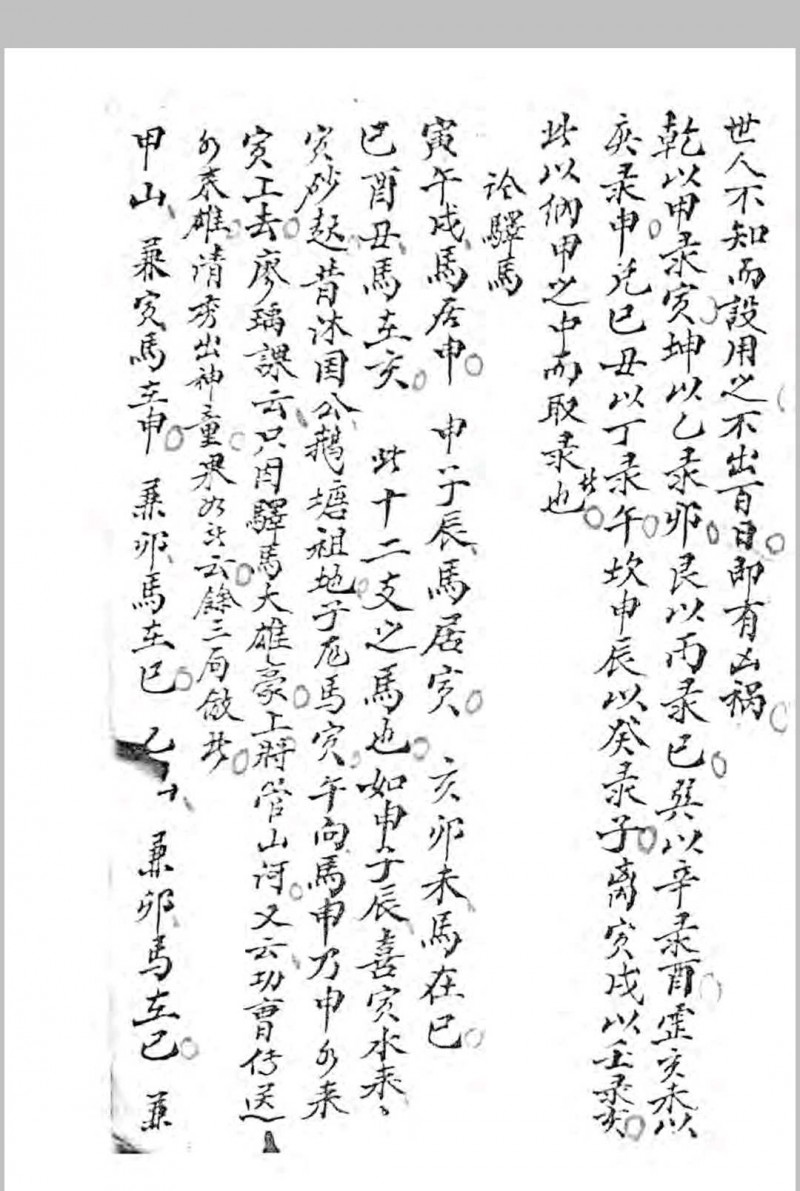 世人不知而設用之不出百日即有凶禍
乾以甲彔寅坤以乙彔卯艮以丙彔巳巽以辛彔酉震亥未以
庚彔申兑巳丑以丁彔午坎申辰以癸彔子離寅戌以壬彔亥
此以納甲之中而取彔也
论驛馬
寅午戌馬居申 申子辰馬居寅 亥卯未馬在巳
巳酉丑馬在亥 此十二支之馬也如申子辰喜寅水来
寅砂起昔沐国公鵝塘祖地子龙馬寅午向馬申乃申水来
寅上去廖瑀課云只因驛馬大雄豪上將管山河又云功曹传送
水来雄清秀出神童果如此云餘三局倣此
甲山 兼寅馬在申 兼卯馬在巳 乙山 兼卯馬在巳 兼